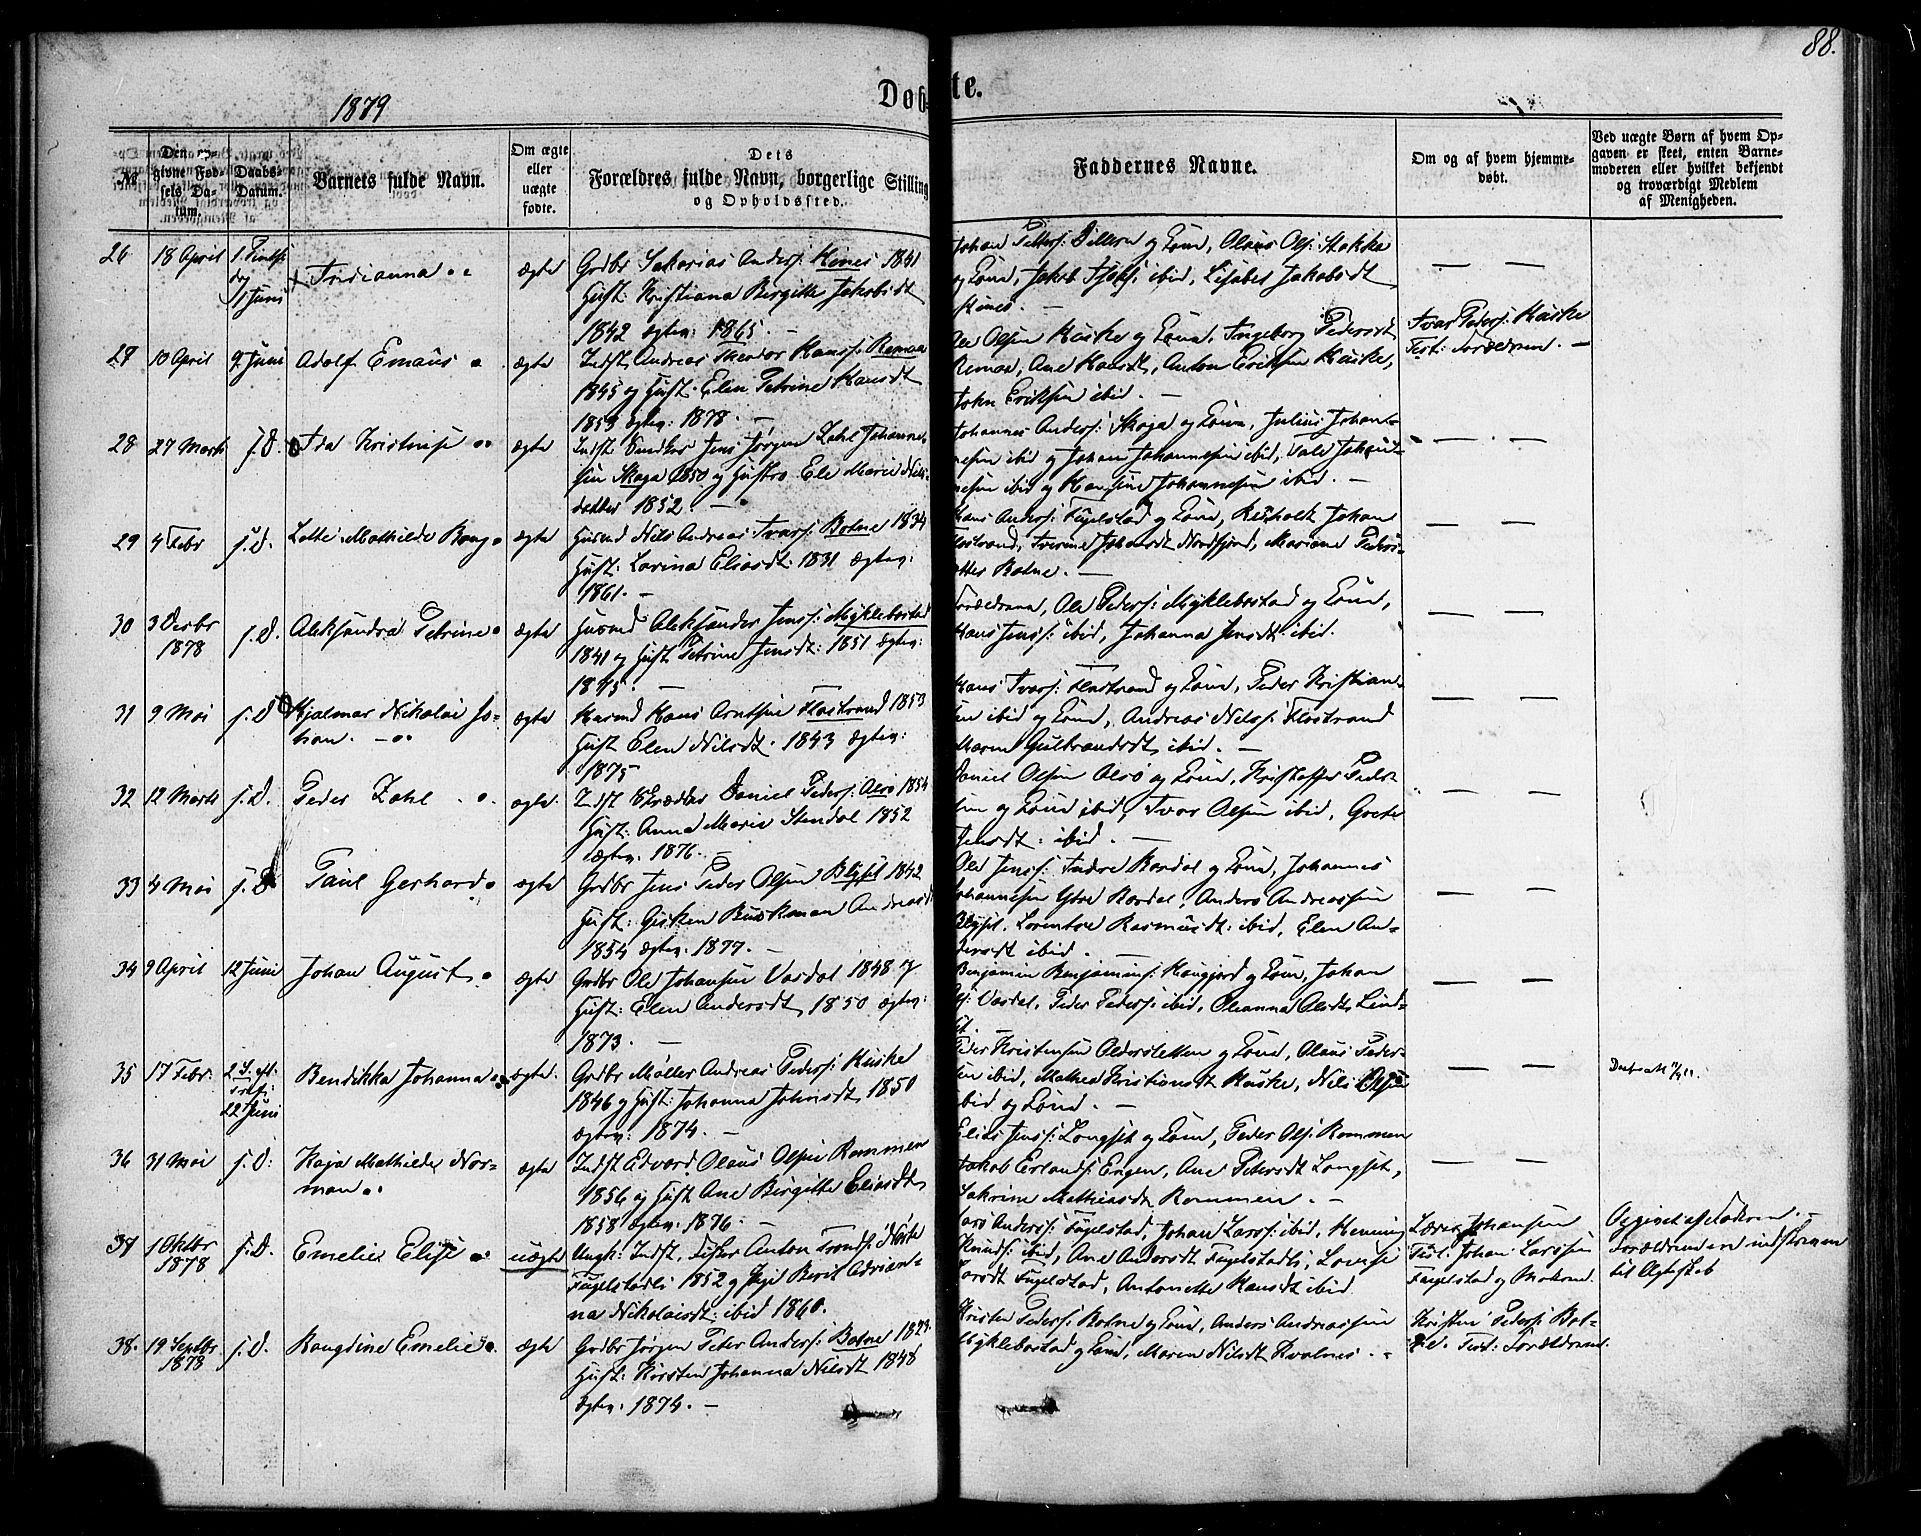 88.
1879
Døbte.
№
Den opgivne Fødsels Datum.
Daabs-Datum.
Barnets fulde Navn.
Om ægte eller uægte fødte.
Dets Forældres fulde Navn, borgerlige Stilling og Opholdssted.
Faddernes Navne.
Om og af hvem hjemmedøbt.
Ved uægte Børn af hvem Opgaven er skeet, enten Barnemoderen eller hvilket bekjendt og troværdigt Medlem af Menigheden.
26 18 April 1. Pintsdag 1 Juni Fridianna ægte
Grdbr Sakarias Anders: Hines 1841
Hust: Kristiana Birgitte Jakobsdt
1842 Ægtev: 1865. —
og Kone, Jakob ibid, Lisabet Jakobsdt
27 10 April 9 Juni Adolf Emaus ægte
Indst Andreas Theodor Hans: Remaa
1845 og Hust: Elen Petrine Hansdt
1853 Ægtev: 1878. —
Ole Olsen Kuske og Kone, Ingeborg Pedersdt
Remaa, Ane Hansdt, Anton Eriksen Kuske,
John Eriksen ibid. —
Ivar Peders: Kuske
Test: Forældrene. —
28 27 Marts s.D. Ida Kristine ægte
Indst Jens Jørgen Zahl Johanne-
sen Skaga 1850 og Hustro Ele Marie Nils-
datter 1852. —
Johannes Anders: Skaga og Kone, Julius Johan-
nesen ibid og Johan Johannesen ibid,
nesen ibid og Hansine Johannesen ibid. —
29 4 Febr s.D. Lotte Mathilde Bong ægte
Husmd Nils Andreas Ivars: Botne 1834
Hust: Larina Eliasdt: 1831 Ægtev:
1861. —
Hans Anders: Fugelstad og Kone, Johan
Nordfjord, Mariane Peders-
datter Botne. —
30 3 Desbr 1878 s.D. Aleksandra Petrine ægte
Husmd Aleksander Jens: Myklebostad
1841 og Hust Petrine Jensdt: 1851 Ægtev:
1875. —
Forældrene, Ole Peders: Myklebostad og Kone,
Hans Jens: ibid, Johanna Jensdt: ibid.
31 9 Mai s.D. Hjalmar Nikolai Jo-
han. ægte
Husmd Hans Arntsen Flostrand 1853
Hust Elen Nilsdt. 1843 Ægtev:
1875
Hans Ivars: Flostrand og Kone, Peder Kristian-
sen ibid og Kone, Andreas Nils: Flostrand
Maren Gulbrandsdt ibid. —
32 12 Marts s.D. Peder Zahl ægte
Indst Skrædder Daniel Peders: Alsø 1854
Hust: Anna Marie Stendal 1852
Ægtev. 1876. —
Daniel Olsen Alsø og Kone, Kristoffer Peder-
sen og Kone ibid, Ivar Olsen ibid, Grete
Jensdt: ibid. —
33 4 Mai s.D. Paul Gerhard ægte
Grdbr Jens Peder Olsen 1842
Hust: Gjerken Buskman Andreasdt
1854 Ægtev: 1877. —
Ole Jens: Indre Kardal og Kone, Johannes
Johannesen Ytre Kardal, Anders Andreassen
Lorentse Rasmusdt: ibid, Elen An-
dersdt ibid. —
34 9 April 12 Juni Johan August ægte
Grdbr Ole Johansen Vasdal 1848 og
Hust: Elen Andersdt 1850 Ægtev:
1873. —
Benjamin Benjamins: Haugjord og Kone, Johan
Vasdal, Peder Peders: ibid, Oleanna Olsdt
35 17 Febr: 2 S. eft: Tref: 22 Juni Bendikka Johanna ægte.
Grdbr Møller Andreas Peders: Kuske
1846 og Hust: Johanna Johnsdt 1850
Ægtev: 1874. —
Peder Kristensen Oldersletten og Kone, Olaus Peder-
sen ibid, Mathea Kristiansdt Kuske, Nils Olsen
ibid og Kone. —
36 31 Mai s.D: Kaja Mathilde Nor-
man ægte
Indst Edvard Olaus Olsen Rommen
1856 og Hust Ane Birgitte Eliasdt
1858 Ægtev: 1876. —
Elias Jens: Longset og Kone, Peder Ols: Rommen
Jakob Erlands: Engen, Ane Petersdt Longset,
Sakrine Mathiasdt Rommen. —
37 1 Oktbr 1878 s.D. Emelie Elise uægte
Ungk: Indst, Fisker Anton Tronds: Nerli
Fugelstadli 1852 og Pige Berit Adrian-
na Nikolaisdt: ibid 1860.
Lars Anders: Fugelstad, Johan Lars: ibid, Henning
Knuds: ibid, Ane Andersdt Fugelstadli, Lovise
Larsdt Fugelstad, Antonette Hansdt ibid
Lærer Johansen
Test. Johan Larssen
Fugelstad og Moderen.
Opgivet af Faderen. —
Forældrene indskreven
til Ægteskab
38. 19 Septbr 1878 s.D. Bangdine Emelie ægte
Grdbr Jørgen Peter Anders: Botne 1829
Hust: Kirsten Johanna Nilsdt 1848
Ægtev: 1874. —
Kristen Peders: Botne og Kone, Anders Andreassen
Myklebostad og Kone, Maren Nilsdt Kvalnes. —
Kristen Peders: Bot-
ne. Test: Forældrene.